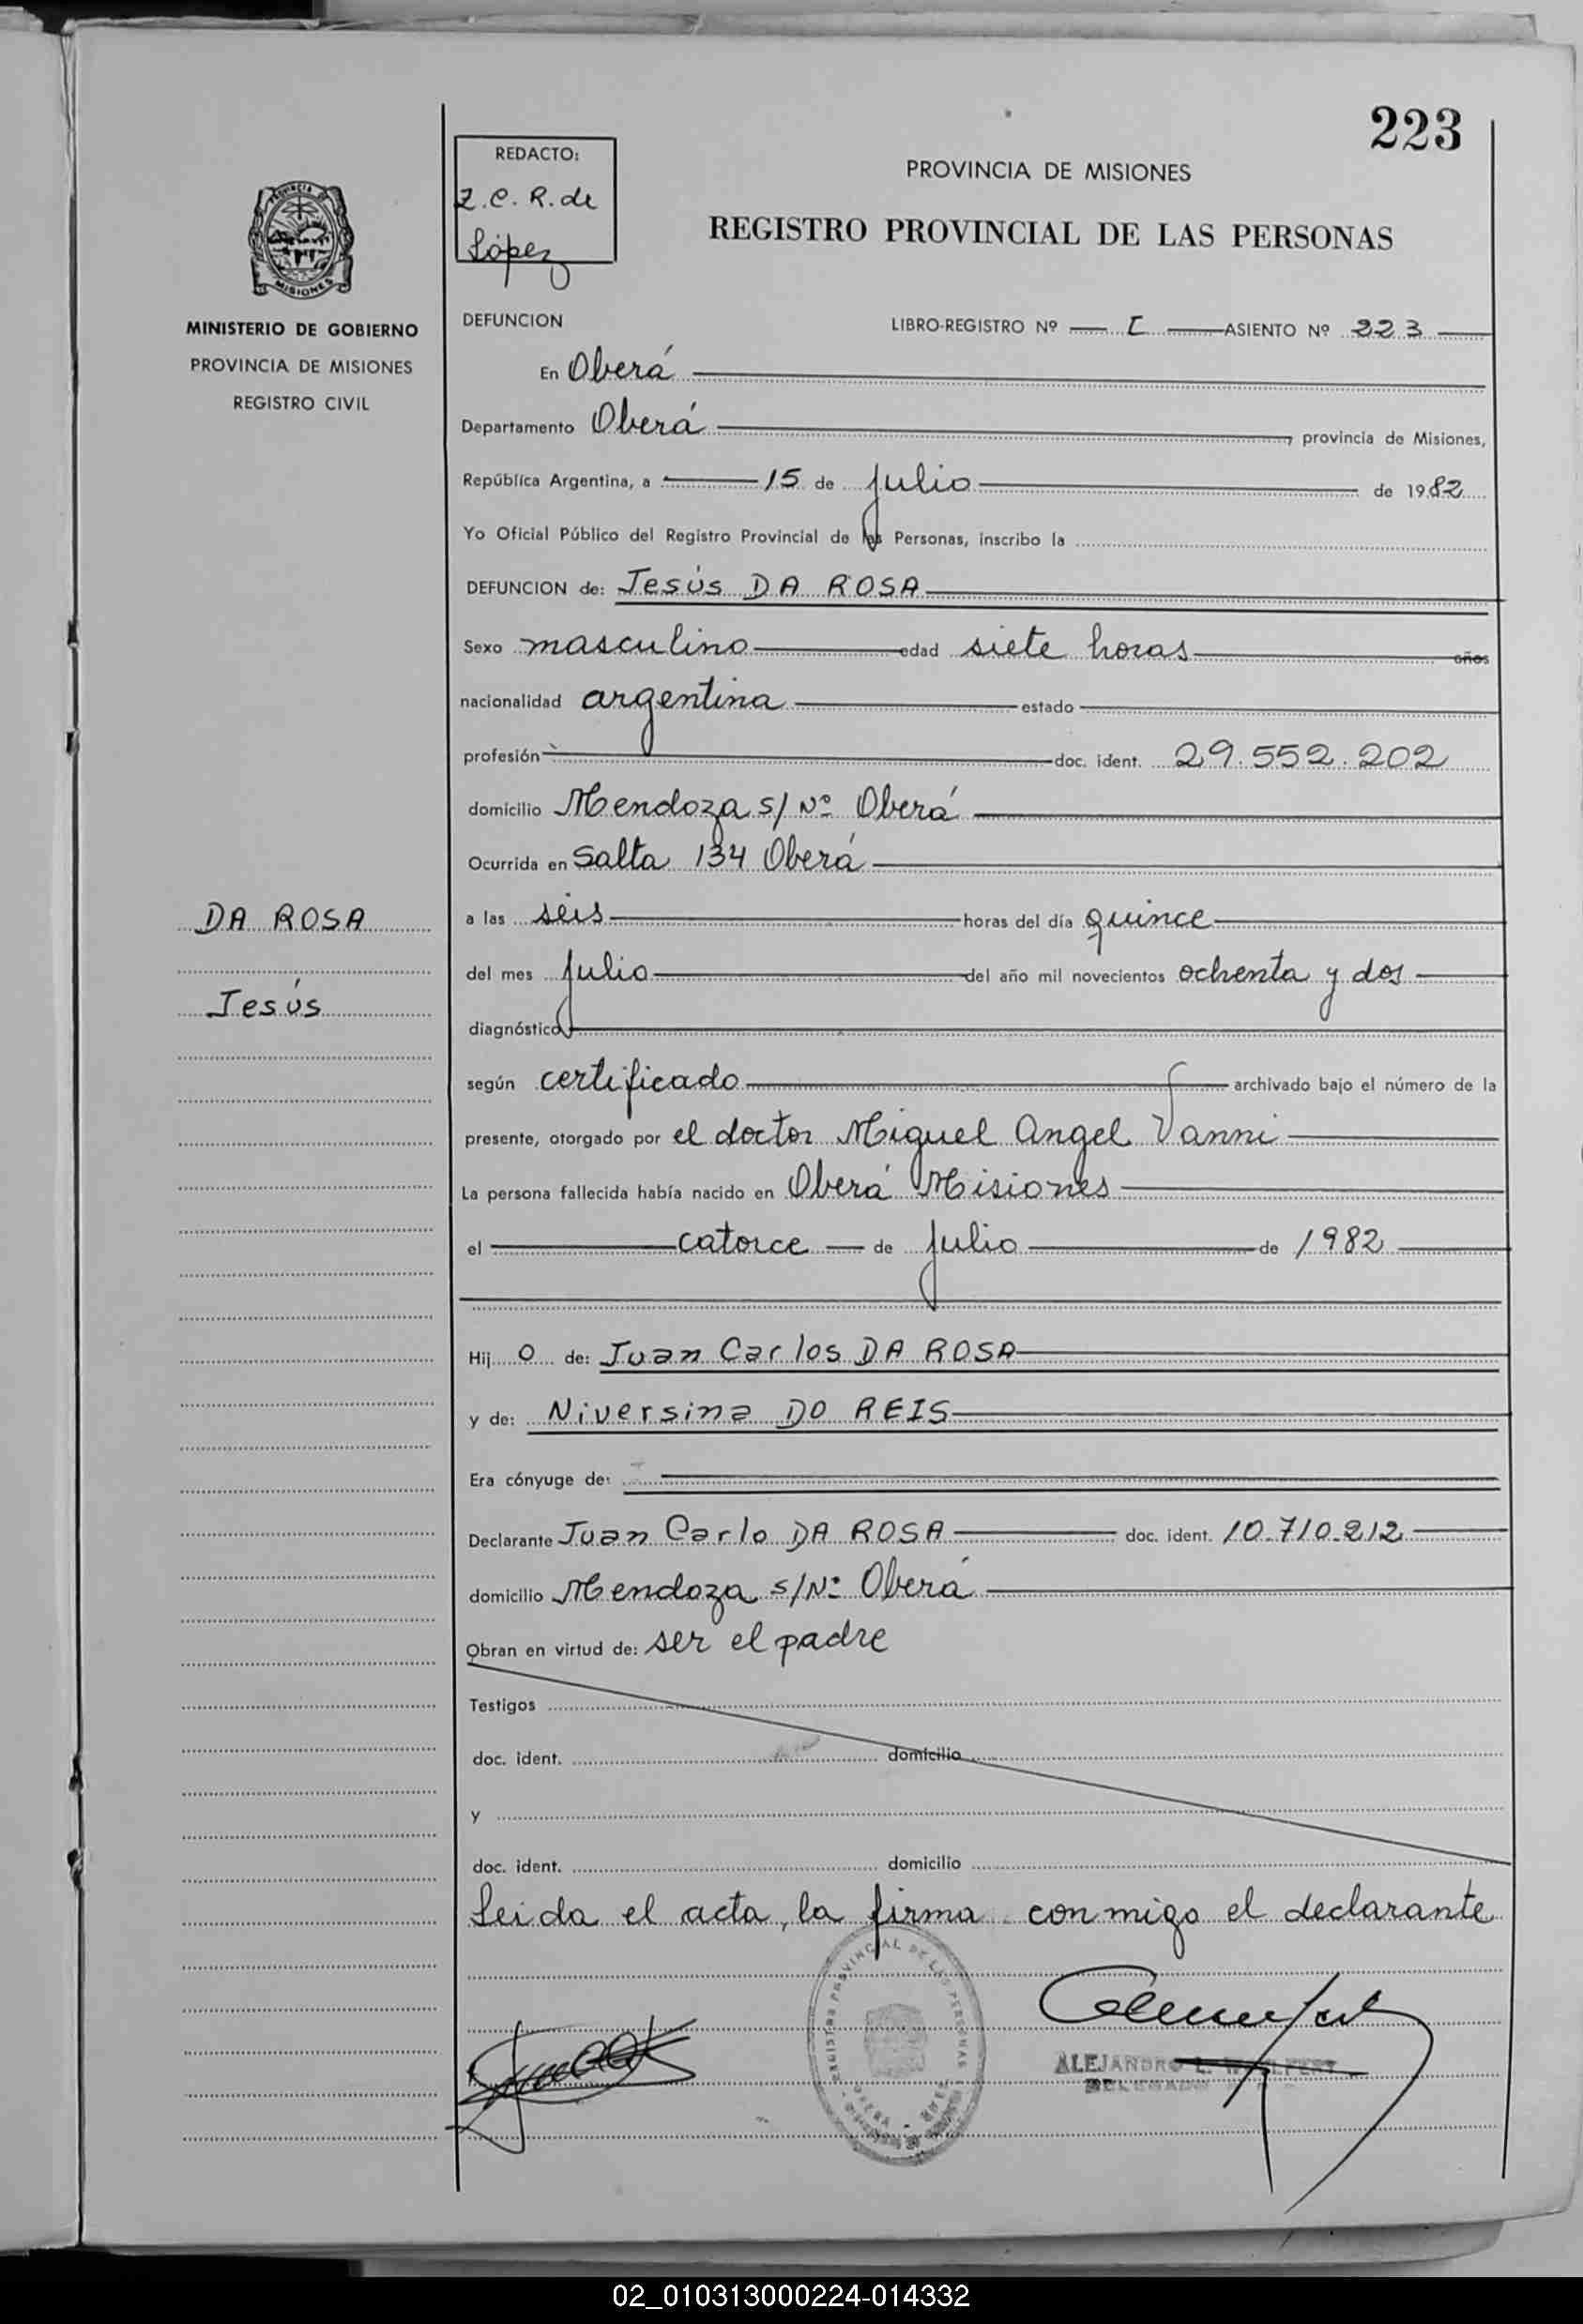 223
REDACTO:
Z. C. R. de
López
PROVINCIA DE MISIONES
REGISTRO PROVINCIAL DE LAS PERSONAS
PROVINCIA DE
MISIONES
MINISTERIO DE GOBIERNO
PROVINCIA DE MISIONES
REGISTRO CIVIL
DEFUNCION
LIBRO-REGISTRO Nº I ASIENTO Nº 223
En Oberá
Departamento Oberá, provincia de Misiones,
República Argentina, a 15 de julio de 1982
Yo Oficial Público del Registro Provincial de las Personas, inscribo la
DEFUNCION de: Jesús DA ROSA
Sexo masculino edad siete horas años
nacionalidad argentina estado
profesión doc. ident. 29.552.202
domicilio Mendoza s/Nº Oberá
Ocurrida en Salta 134 Oberá
DA ROSA
Jesús
a las seis horas del día quince
del mes julio del año mil novecientos ochenta y dos
diagnóstico
según certificado archivado bajo el número de la
presente, otorgado por el doctor Miguel Angel Vanni
La persona fallecida había nacido en Oberá Misiones
el catorce de julio de 1982
Hij o de: Juan Carlos DA ROSA
y de: Niversina DO REIS
Era cónyuge de:
Declarante Juan Carlo DA ROSA doc. ident. 10.710.212
domicilio Mendoza s/Nº Oberá
Obran en virtud de: ser el padre
Testigos
doc. ident. domicilio
y
doc. ident. domicilio
Leida el acta, la firma conmigo el declarante
REGISTRO PROVINCIAL DE LAS PERSONAS
ALEJANDRO L.
DELEGADO
02_010313000224-014332